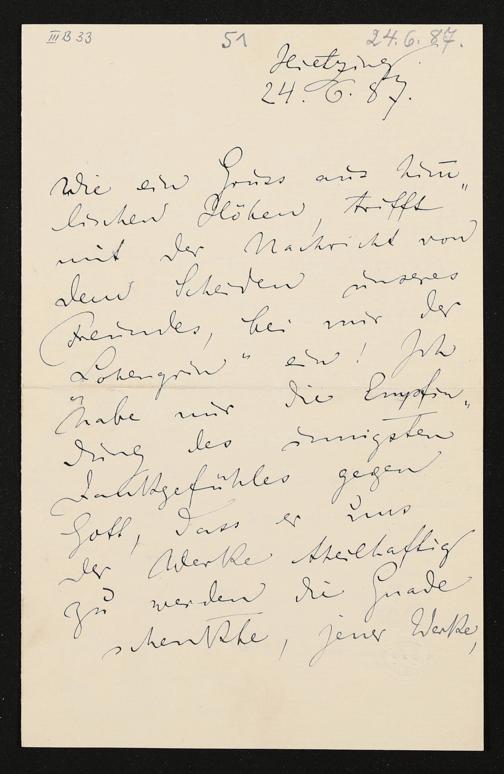 III B 33 51 24.6.87.
Hietzing
24. 6. 87.
Wie ein Gruss aus him„
lischen Höhen, trifft
mit der Nachricht von
dem Scheiden unseres
Freundes, bei mir der
„Lohengrin“ ein! Ich
habe nur die Empfin„
dung des innigsten
Dankgefühles gegen
Gott, dass er uns
der Werke theilhaftig
zu werden die Gnade
schenkte, jener Werke,